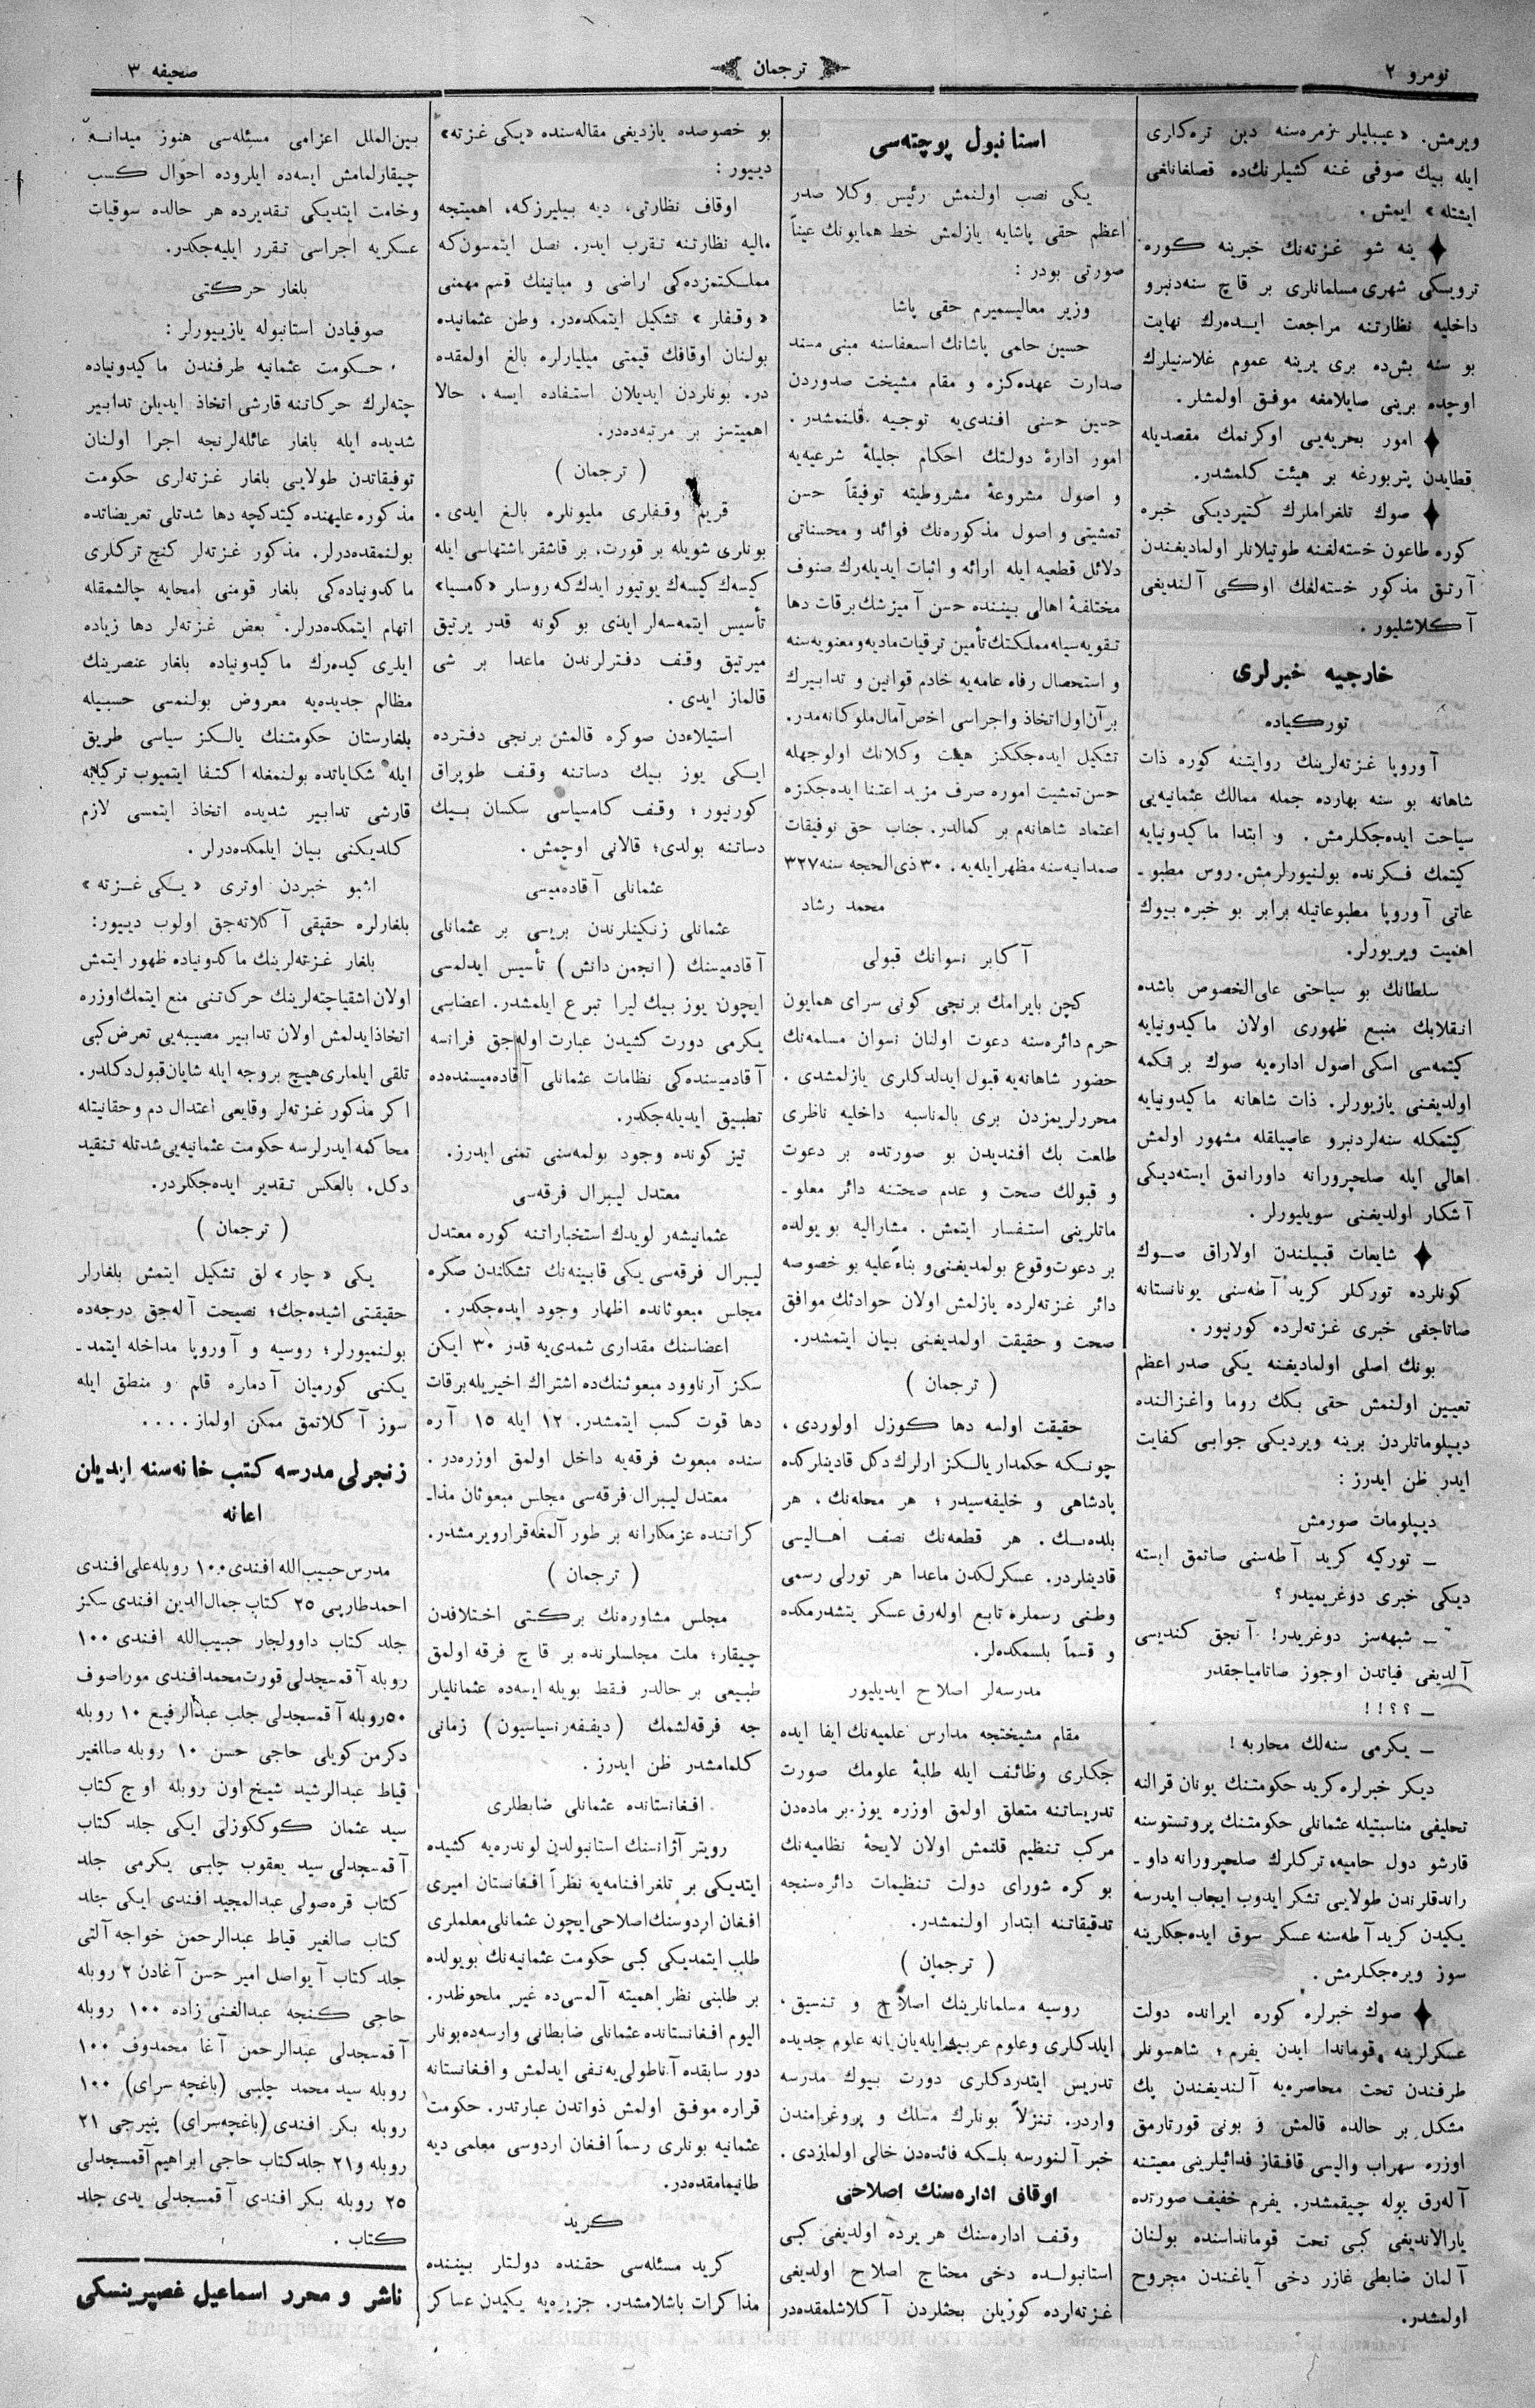 نومرو ۲
ترجمان
صحیفه ۳
ویرمش. «عیبلیلر زمره‌سنه دین تره‌کاری
ایله بیك صوفی غنه کشیلرنك‌ده قصلغانلغی
ایشتله» ایمش.
ینه شو غزته‌نك خبرینه کوره
ترویسکی شهری مسلمانلری بر قاچ سنه‌دنبرو
داخلیه نظارتنه مراجعت ایده‌رك نهایت
بو سنه بش‌ده بری یرینه عموم غلاسنیلرك
اوچده برینی صایلامغه موفق اولمشلر.
امور بحریه‌یی اوکرنمك مقصدیله
قطایدن پتربورغه بر هیئت کلمشدر.
صوك تلغراملرك کتیردیکی خبره
کوره طاعون خسته‌لغنه طوتیلانلر اولمادیغندن
آرتق مذکور خسته‌لغك اوکی آلندیغی
آکلاشلیور.
خارجیه خبرلری
تورکیاده
آوروپا غزته‌لرینك روایتنه کوره ذات
شاهانه بو سنه بهارده جمله ممالك عثمانیه‌یی
سیاحت ایده‌جکلرمش. و ابتدا ماکیدونیایه
کیتمك فکرنده بولنیورلرمش. روس مطبو-
عاتی آوروپا مطبوعاتیله برابر بو خبره بیوك
اهمیت ویریورلر.
سلطانك بو سیاحتی علی‌الخصوص باشده
انقلابك منبع ظهوری اولان ماکیدونیایه
کیتمه‌سی اسکی اصول اداره‌یه صوك بر تکمه
اولدیغنی یازیورلر. ذات شاهانه ماکیدونیایه
کیتمکله سنه‌لردنبرو عاصیلقله مشهور اولمش
اهالی ایله صلحپرورانه داورانمق ایسته‌دیکی
آشکار اولدیغنی سویلیورلر.
شایعات قبیلندن اولاراق صوك
کونلرده تورکلر کرید آطه‌سنی یونانستانه
صاتاجغی خبری غزته‌لرده کورنیور.
بونك اصلی اولمادیغنه یکی صدر اعظم
تعیین اولنمش حقی بکك روما واغزالنده
دیپلوماتلردن برینه ویردیکی جوابی کفایت
ایدر ظن ایدرز:
دیپلومات صورمش
— تورکیه کرید آطه‌سنی صاتمق ایسته
دیکی خبری دوغریمیدر؟
— شبهه‌سز دوغریدر! آنجق کندیسی
آلدیغی فیاتدن اوجوز صاتامیاجقدر
— ؟؟!!
— یکرمی سنه‌لك محاربه!
دیکر خبرلره کرید حکومتنك یونان قرالنه
تحلیفی مناسبتیله عثمانلی حکومتنك پروتستوسنه
قارشو دول حامیه، ترکلرك صلحپرورانه داو-
راندقلرندن طولایی تشکر ایدوب ایجاب ایدرسه
یکیدن کرید آطه‌سنه عسکر سوق ایده‌جکلرینه
سوز ویره‌جکلرمش.
صوك خبرلره کوره ایرانده دولت
عسکرلرینه قوماندا ایدن یفرم؛ شاهسونلر
طرفندن تحت محاصره‌یه آلندیغندن پك
مشکل بر حالده قالمش و بونی قورتارمق
اوزره سهراب والیسی قافقاز فدائیلرینی معیتنه
آله‌رق یوله چیقمشدر. یفرم خفیف صورتده
یارالاندیغی کبی تحت قومانداسنده بولنان
آلمان ضابطی غازر دخی آیاغندن مجروح
اولمشدر.
استانبول پوچته‌سی
یکی نصب اولنمش رئیس وکلا صدر
اعظم حقی پاشایه یازلمش خط همایونك عیناً
صورتی بودر:
وزیر معالیسمیرم حقی پاشا
حسین حلمی پاشانك استعفاسنه مبنی مسند
صدارت عهده‌کزه و مقام مشیخت صدوردن
حسین حسنی افندی‌یه توجیه قلنمشدر.
امور ادارۀ دولتك احکام جلیلۀ شرعیه‌یه
و اصول مشروعۀ مشروطیته توفیقاً حسن
تمشیتی و اصول مذکوره‌نك فوائد و محسناتی
دلائل قطعیه ایله ارائه و اثبات ایدیله‌رك صنوف
مختلفۀ اهالی بیننده حسن آمیزشك برقات دها
تقویه‌سیله مملکتك تأمین ترقیات مادیه و معنویه‌سنه
و استحصال رفاه عامه‌یه خادم قوانین و تدابیرك
برآن اول اتخاذ و اجراسی اخص آمال ملوکانه‌مدر.
تشکیل ایده‌جککز هیئت وکلانك اولوجهله
حسن تمشیت اموره صرف مزید اعتنا ایده‌جکزه
اعتماد شاهانه‌م بر کمالدر. جناب حق توفیقات
صمدانیه‌سنه مظهر ایله‌یه. ۳۰ ذی‌الحجه سنه ۳۲۷
محمد رشاد
آکابر نسوانك قبولی
کچن بایرامك برنجی کونی سرای همایون
حرم دائره‌سنه دعوت اولنان نسوان مسلمه‌نك
حضور شاهانه‌یه قبول ایدلدکلری یازلمشدی.
محررلریمزدن بری بالمناسبه داخلیه ناظری
طلعت بك افندیدن بو صورتده بر دعوت
و قبولك صحت و عدم صحتنه دائر معلو-
ماتلرینی استفسار ایتمش. مشارالیه بو یولده
بر دعوت وقوع بولمدیغنی و بناءً علیه بو خصوصه
دائر غزته‌لرده یازلمش اولان حوادثك موافق
صحت و حقیقت اولمدیغنی بیان ایتمشدر.
(ترجمان)
حقیقت اولسه دها کوزل اولوردی،
چونکه حکمدار یالکز ارلرك دکل قادینلرکده
پادشاهی و خلیفه‌سیدر؛ هر محله‌نك، هر
بلده‌نك. هر قطعه‌نك نصف اهالیسی
قادینلردر. عسکرلکدن ماعدا هر تورلی رسمی
وطنی رسملره تابع اوله‌رق عسکر یتشدرمکده
و قسماً بلسمکده‌لر.
مدرسه‌لر اصلاح ایدیلیور
مقام مشیختجه مدارس علمیه‌نك ایفا ایده
جکلری وظائف ایله طلبۀ علومك صورت
تدریساتنه متعلق اولمق اوزره یوز بر ماده‌دن
مرکب تنظیم قلنمش اولان لایحۀ نظامیه‌نك
بو کره شورای دولت تنظیمات دائره‌سنجه
تدقیقاتنه ابتدار اولنمشدر.
(ترجمان)
روسیه مسلمانلرینك اصلاح و تنسیق،
ایلدکلری وعلوم عربیه ایله یان یانه علوم جدیده
تدریس ایتدردکلری دورت بیوك مدرسه
واردر. تنزلاً بونلرك مسلك و پروغرامندن
خبر آلنورسه بلکه فائده‌دن خالی اولمازدی.
اوقاف اداره‌سنك اصلاحی
وقف اداره‌سنك هر یرده اولدیغی کبی
استانبولده دخی محتاج اصلاح اولدیغی
غزته‌لرده کوزیلن بحثلردن آکلاشلمقده‌در
بو خصوصده یازدیغی مقاله‌سنده «یکی غزته»
دییور:
اوقاف نظارتی، دیه بیلیرزکه، اهمیتجه
مالیه نظارتنه تقرب ایدر. نصل ایتمسون‌که
مملکتمزده‌کی اراضی و مبانینك قسم مهمنی
«وقفلر» تشکیل ایتمکده‌در. وطن عثمانیده
بولنان اوقافك قیمتی میلیارلره بالغ اولمقده
در. بونلردن ایدیلان استفاده ایسه، حالا
اهمیتسز بر مرتبه‌ده‌در.
(ترجمان)
قریم وقفلری ملیونلره بالغ ایدی.
بونلری شویله بر قورت، بر قاشقر اشتهاسی ایله
کیسه‌ك کیسه‌ك یوتیور ایدك‌که روسلر «کامسیا»
تأسیس ایتمه‌سه‌لر ایدی بو کونه قدر یرتیق
میرتیق وقف دفترلرندن ماعدا بر شی
قالماز ایدی.
استیلاءدن صوکره قالمش برنجی دفترده
ایکی یوز بیك دساتنه وقف طوپراق
کورنیور؛ وقف کامسیاسی سکسان بیك
دساتنه بولدی؛ قالانی اوچمش.
عثمانلی آقاده‌میسی
عثمانلی زنکینلرندن بریسی بر عثمانلی
آقادمیسنك (انجمن دانش) تأسیس ایدلمسی
ایچون یوز بیك لیرا تبرع ایلمشدر. اعضاسی
یکرمی دورت کشیدن عبارت اوله‌جق فرانسه
آقادمیسنده‌کی نظامات عثمانلی آقاده‌میسنده‌ده
تطبیق ایدیله‌جکدر.
تیز کونده وجود بولمه‌سنی تمنی ایدرز.
معتدل لیبرال فرقه‌سی
عثمانیشه‌ر لویدك استخباراتنه کوره معتدل
لیبرال فرقه‌سی یکی قابینه‌نك تشکلندن صکره
مجلس مبعوثانده اظهار وجود ایده‌جکدر.
اعضاسنك مقداری شمدی‌یه قدر ۳۰ ایکن
سکز آرناوود مبعوثنك‌ده اشتراك اخیریله برقات
دها قوت کسب ایتمشدر. ۱۲ ایله ۱۵ آره
سنده مبعوث فرقه‌یه داخل اولمق اوزره‌در.
معتدل لیبرال فرقه‌سی مجلس مبعوثان مذا-
کراتنده عزمکارانه بر طور آلمغه قرار ویرمشدر.
(ترجمان)
مجلس مشاوره‌نك برکتی اختلافدن
چیقار؛ ملت مجلسلرنده بر قاچ فرقه اولمق
طبیعی بر حالدر فقط بویله ایسه‌ده عثمانلیلر
جه فرقه‌لشمك (دیففه‌رنسیاسیون) زمانی
کلمامشدر ظن ایدرز.
افغانستانده عثمانلی ضابطلری
رویتر آژانسنك استانبولدن لوندره‌یه کشیده
ایتدیکی بر تلغرافنامه‌یه نظراً افغانستان امیری
افغان اردوسنك اصلاحی ایچون عثمانلی معلملری
طلب ایتمدیکی کبی حکومت عثمانیه‌نك بو یولده
بر طلبنی نظر اهمیته آلمسی‌ده غیر ملحوظدر.
الیوم افغانستانده عثمانلی ضابطانی وارسه‌ده بونلر
دور سابقده آناطولی‌یه نفی ایدلمش و افغانستانه
قراره موفق اولمش ذواتدن عبارتدر. حکومت
عثمانیه بونلری رسماً افغان اردوسی معلمی دیه
طانیمامقده‌در.
کرید
کرید مسئله‌سی حقنده دولتلر بیننده
مذاکرات باشلامشدر. جزیره‌یه یکیدن عساکر
بین‌الملل اعزامی مسئله‌سی هنوز میدانه
چیقارلمامش ایسه‌ده ایلروده احوال کسب
وخامت ایتدیکی تقدیرده هر حالده سوقیات
عسکریه اجراسی تقرر ایلیه‌جکدر.
بلغار حرکتی
صوفیادن استانبوله یازیبیورلر:
حکومت عثمانیه طرفندن ماکیدونیاده
چته‌لرك حرکاتنه قارشی اتخاذ ایدیلن تدابیر
شدیده ایله بلغار عائله‌لرنجه اجرا اولنان
توفیقاتدن طولایی بلغار غزته‌لری حکومت
مذکوره علیهنده کیتدکچه دها شدتلی تعریضاتده
بولنمقده‌درلر. مذکور غزته‌لر کنج ترکلری
ماکدونیاده‌کی بلغار قومنی امحایه چالشمقله
اتهام ایتمکده‌درلر. بعض غزته‌لر دها زیاده
ایلری کیده‌رك ماکیدونیاده بلغار عنصرینك
مظالم جدیده‌یه معروض بولنمسی حسبیله
بلغارستان حکومتنك یالکز سیاسی طریق
ایله شکایاتده بولنمغله اکتفا ایتمیوب ترکیایه
قارشی تدابیر شدیده اتخاذ ایتمسی لازم
کلدیکنی بیان ایلمکده‌درلر.
اشبو خبردن اوتری «یکی غزته»
بلغارلره حقیقی آکلاته‌جق اولوب دییور:
بلغار غزته‌لرینك ماکدونیاده ظهور ایتمش
اولان اشقیا چته‌لرینك حرکاتنی منع ایتمك اوزره
اتخاذ ایدلمش اولان تدابیر مصیبه‌یی تعرض کبی
تلقی ایلماری هیچ بروجه ایله شایان قبول دکلدر.
اکر مذکور غزته‌لر وقایعی اعتدال دم و حقانیتله
محاکمه ایدرلرسه حکومت عثمانیه‌یی شدتله تنقید
دکل، بالعکس تقدیر ایده‌جکلردر.
(ترجمان)
یکی «چار» لق تشکیل ایتمش بلغارلر
حقیقتی اشیده‌جك؛ نصیحت آله‌جق درجه‌ده
بولنمیورلر؛ روسیه و آوروپا مداخله ایتمد-
یکنی کورمیان آدماره قلم و منطق ایله
سوز آکلاتمق ممکن اولماز....
زنجرلی مدرسه کتب خانه‌سنه ایدیلن
اعانه
مدرس حبیب‌الله افندی ۱۰۰ روبله علی افندی
احمد طاریی ۲۵ کتاب جمال‌الدین افندی سکز
جلد کتاب داوولجار حبیب‌الله افندی ۱۰۰
روبله آقمسجدلی قورت محمد افندی موراصوف
۵۰ روبله آقمسجدلی جلب عبدالرفیع ۱۰ روبله
دکرمن کویلی حاجی حسن ۱۰ روبله صالغیر
قیاط عبدالرشید شیخ اون روبله اوچ کتاب
سید عثمان کوککوزلی ایکی جلد کتاب
آقمسجدلی سید یعقوب چلبی یکرمی جلد
کتاب قره‌صولی عبدالمجید افندی ایکی جلد
کتاب صالغیر قیاط عبدالرحمن خواجه آلتی
جلد کتاب آیواصل امیر حسن آغادن ۲ روبله
حاجی کنجه عبدالغنی زاده ۱۰۰ روبله
آقمسجدلی عبدالرحمن آغا محمدوف ۱۰۰
روبله سید محمد چلبی (باغچه سرای) ۱۰۰
روبله بکر افندی (باغچه‌سرای) پنیرجی ۲۱
روبله و ۲۱ جلد کتاب حاجی ابراهیم آقمسجدلی
۲۵ روبله بکر افندی آقمسجدلی یدی جلد
کتاب.
ناشر و محرر اسماعیل غصپرینسکی